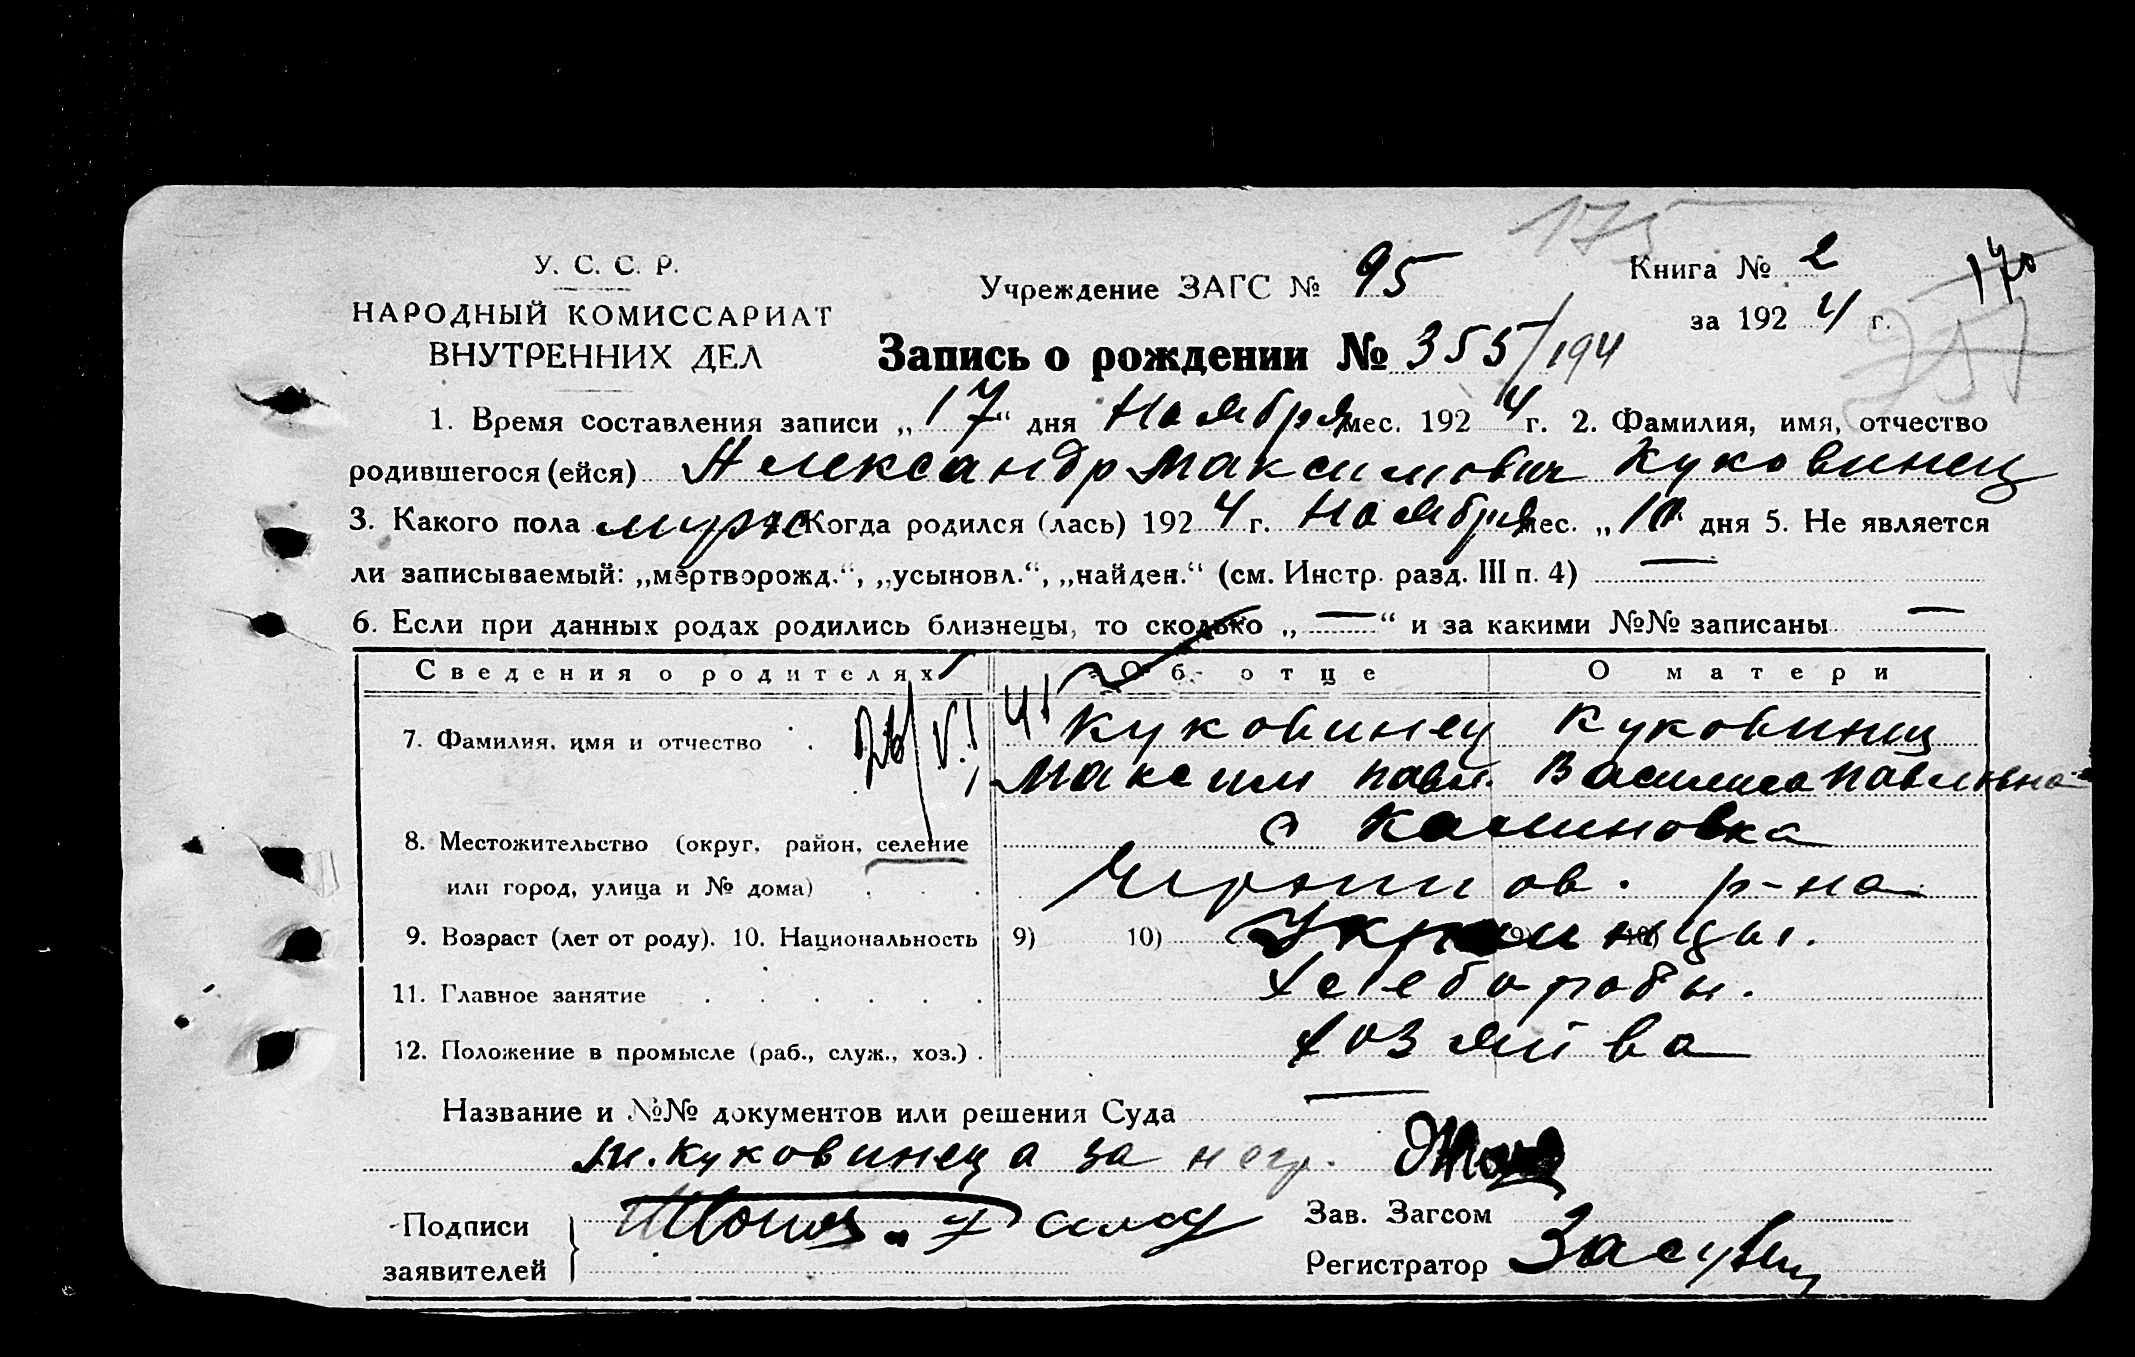 175
У. С. С. Р.
Учреждение ЗАГС № 95
Книга № 2
170
НАРОДНЫЙ КОМИССАРИАТ
за 1924 г.
ВНУТРЕННИХ ДЕЛ
Запись о рождении № 355/194
1. Время составления записи „17“ дня Ноября мес. 1924 г. 2. Фамилия, имя, отчество
родившегося (ейся) Александр Максимович Куковинец
3. Какого пола муж Когда родился (лась) 1924 г. Ноября мес. „10“ дня 5. Не является
ли записываемый: „мертворожд.“, „усыновл.“, „найден.“ (см. Инстр. разд. III п. 4) —
6. Если при данных родах родились близнецы, то сколько „—“ и за какими №№ записаны —
Сведения о родителях Об отце О матери
7. Фамилия, имя и отчество Куковинец Куковинец
Максим Павл. Василиса Павловна
8. Местожительство (округ, район, селение с Калиновка
или город, улица и № дома) р-на
9. Возраст (лет от роду). 10. Национальность 9) 10) Украинцы. 9) 10)
11. Главное занятие Хлеборобы.
12. Положение в промысле (раб., служ., хоз.) Хозяйва
Название и №№ документов или решения Суда —
М. Куковинеца за негр.
Подписи
заявителей
Зав. Загсом
Регистратор